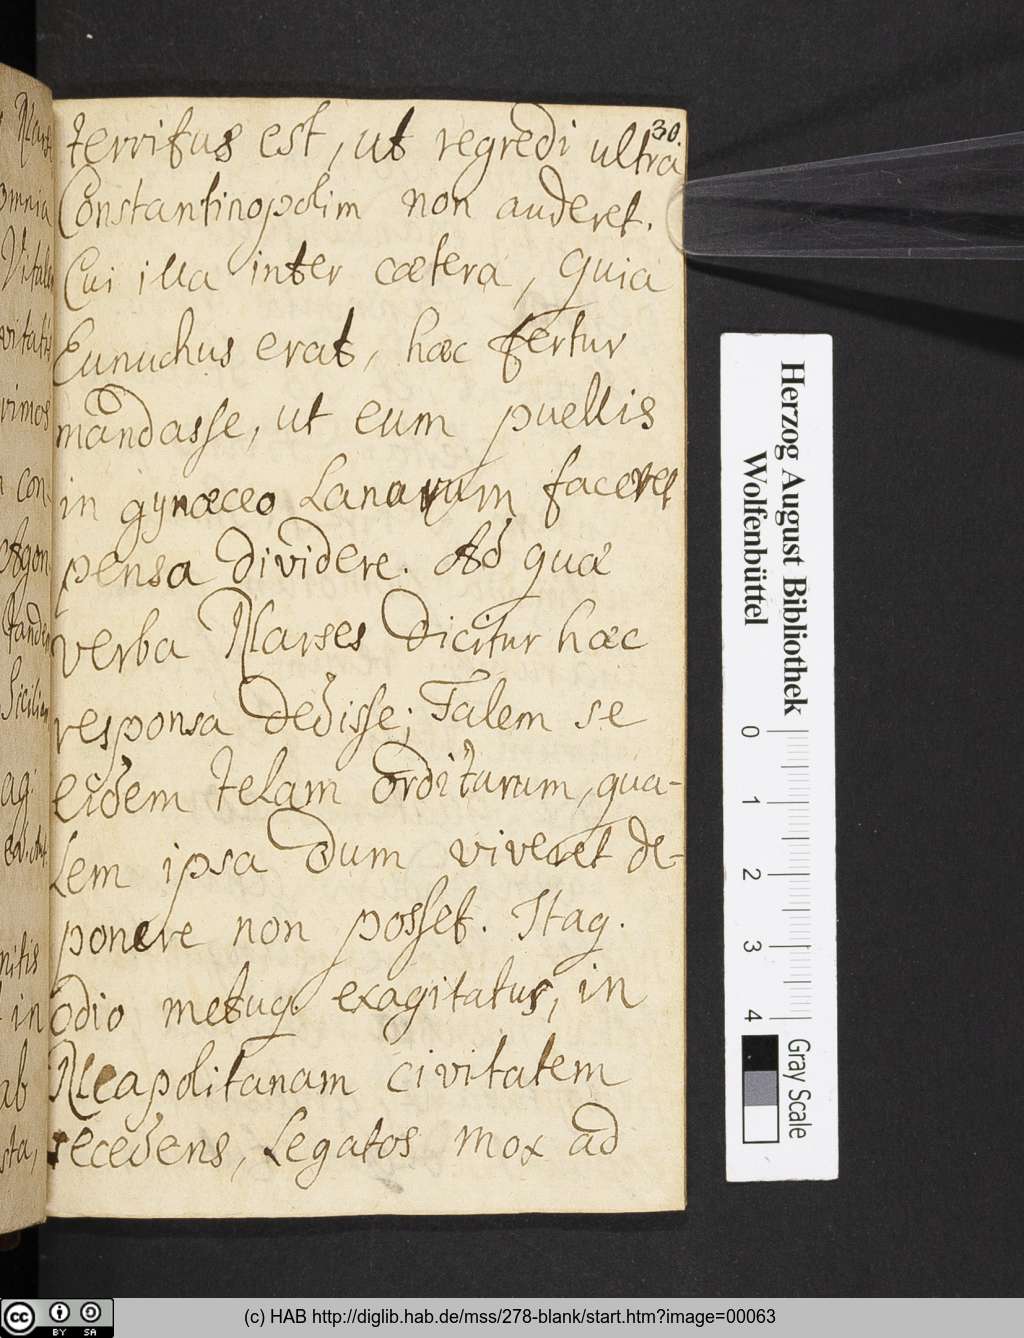 30
territus est, ut regredi ultra
Constantinopolim non auderet.
Cui illa inter cætera, quia
Eunuchus erat, hæc fertur
mandasse, ut eum puellis
in gynæceo Lanarum faceret
pensa dividere. Ad quæ
verba Narses dicitur hæc
responsa dedisse; Talem se
eidem telam orditurum, qua-
Lem ipsa dum viveret de-
ponere non posset. Itaq.
odio metuq. exagitatus, in
Neapolitanam civitatem
recedens, Legatos mox ad
Nars
omnia
Vitali
vitatis
con-
Agon
tande
Sicilia
nitis
in
ab
sta,
Herzog August Bibliothek
Wolfenbüttel
0 1 2 3 4
Gray Scale
cc BY SA
(c) HAB http://diglib.hab.de/mss/278-blank/start.htm?image=00063